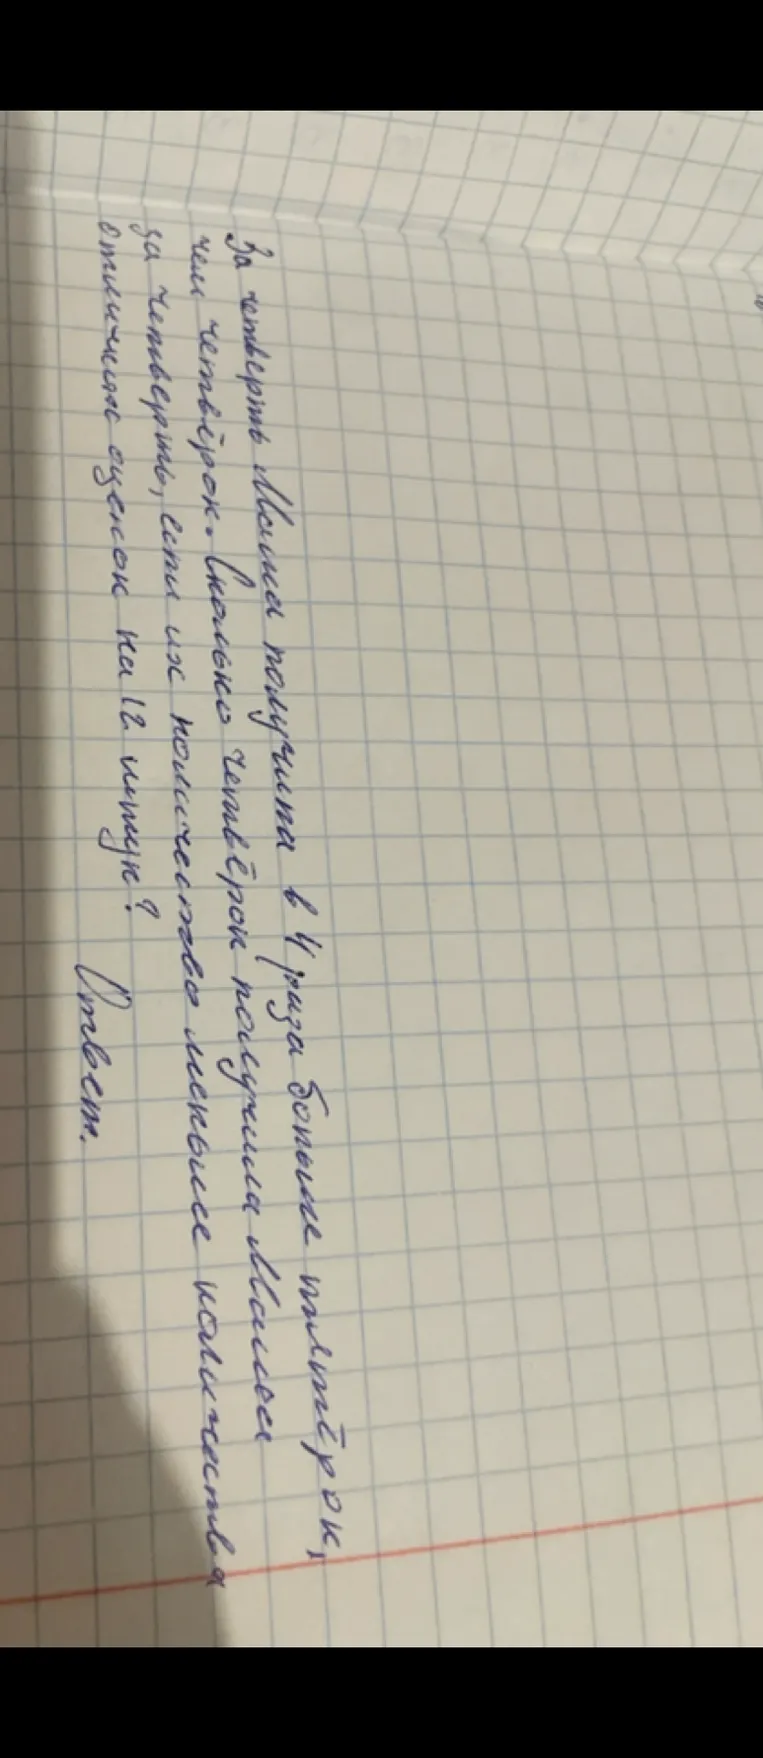 За четверть Маша получила в 4 раза больше пятёрок,
чем четвёрок. Сколько четвёрок получила Маша
за четверть, если их количество меньше количества
отличных оценок на 12 штук? Ответ.